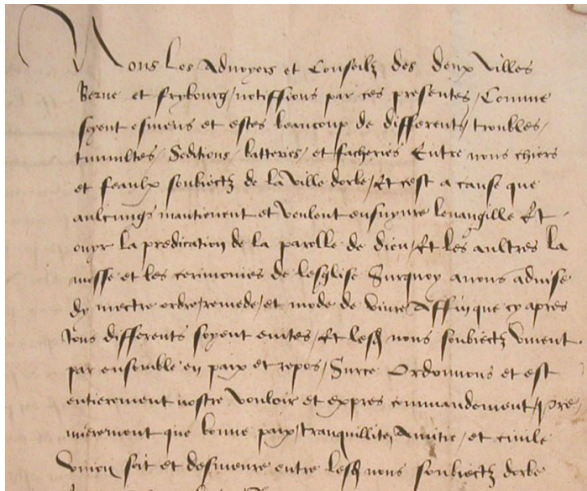 Nous Les Advoyers et Conseilz des deux Villes
Berne et frybourg / notiffions par ces presentes / Comme
soyent esmeus et estes beaucoup de differents / troubles /
tumultes / Seditions / batteries / et facheries Entre nous chiers
et feaulx soubiectz de la Ville dorbe / Et cest a cause que
aulcungs maintienent et veulent ensuyvre levangille Et
ouyr la predication de la parolle de dieu / Et les aultres la
messe et les cerimonies de leglise Surquoy avons advise
dy mectre ordre / remede / et mode de vivre Affin que cy apres
tous differents soyent evites / Et lesd nous soubiectz vivent
par ensemble en paix et repos / Surce Ordonnons et est
entierement nostre vouloir et expres commandement / Pre
mierement que bonne paix / tranquillite, Amitie / et civile
Union soit et demeure entre lesd nous soubiectz dorbe